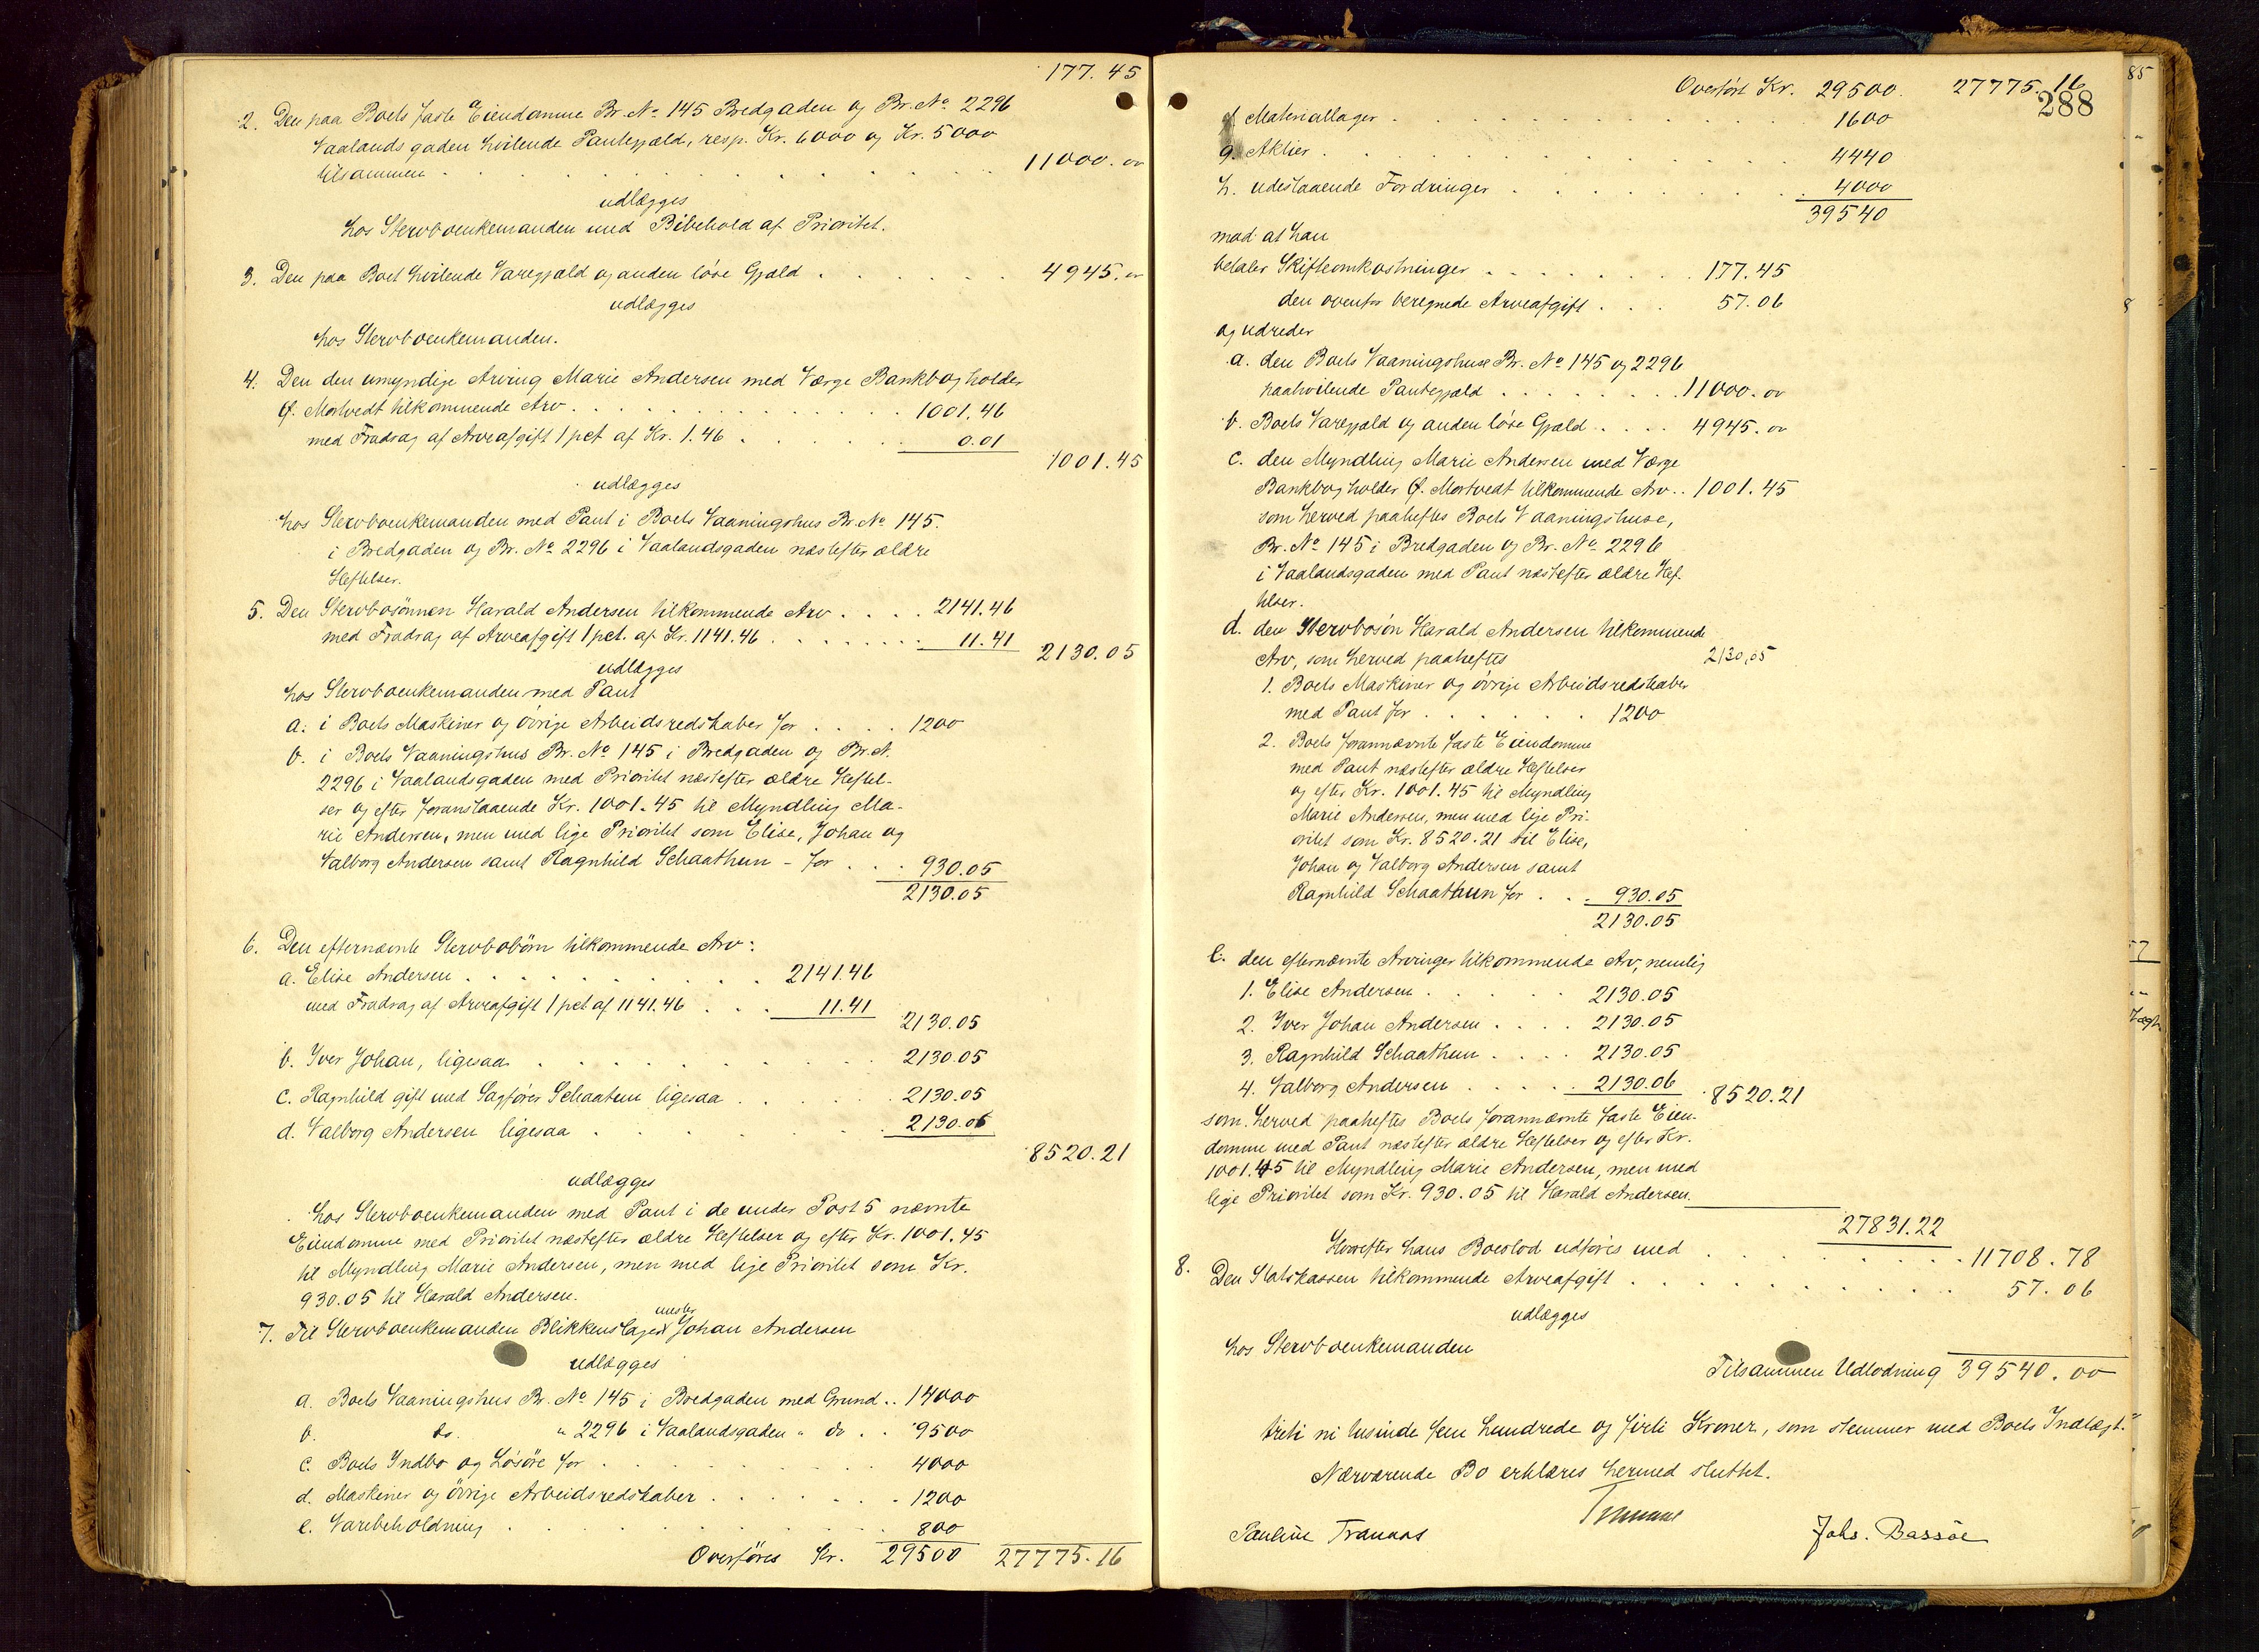 177.45
2. Den paa Boets faste Eiendomme Br. No 145 Bredgaden og Br. No 2296
Vaalands gaden hvilende Pantegjæld, resp. Kr. 6000 og Kr. 5000
tilsammen . . . 11000. oo
udlægges
hos Stervboenkemanden med Bibehold af Prioritet.
3. Den paa Boet hvilende Varegjæld og anden løse Gjæld . . . 4945. oo
udlægges
hos Stervboenkemanden.
4. Den den umyndige Arving Marie Andersen med Værge Bankbogholder
Ø. Mortvedt tilkommende Arv . . . 1001.46
med Fradrag af Arveafgift 1 pct af Kr. 1.46 . . . 0.01
1001.45
udlægges
hos Stervboenkemanden med Pant i Boets Vaaningshus Br. No 145.
i Bredgaden og Br. No 2296 i Vaalandsgaden næstefter ældre
Heftelser.
5. Den Stervbosönnen Harald Andersen tilkommende Arv . . . 2141.46
med Fradrag af Arveafgift 1 pct. af Kr. 1141.46 . . . 11.41
2130.05
udlægges
hos Stervboenkemanden med Pant
a. i Boets Maskiner og övrige Arbeidsredskaber for . . . 1200
b. i Boets Vaaningshus Br. No 145 i Bredgaden og Br. N.
2296 i Vaalandsgaden med Prioritet næstefter ældre Heftel-
ser og efter foranstaaende Kr. 1001.45 til Myndling Ma-
rie Andersen, men med lige Prioritet som Elise, Johan og
Valborg Andersen samt Ragnhild Schaathun - for . . . 930.05
2130.05
6. Den efternævnte Stervbobörn tilkommende Arv:
a. Elise Andersen . . . 2141.46
med Fradrag af Arveafgift 1 pct af 1141.46 . . . 11.41
2130.05
b. Iver Johan, ligesaa . . . 2130.05
c. Ragnhild gift med Sagfører Schaatun ligesaa . . . 2130.05
d. Valborg Andersen ligesaa . . . 2130.06
8520.21
udlægges
hos Stervboenkemanden med Pant i de under Post 5 nævnte
Eiendomme med Prioritet næstefter ældre Heftelser og efter Kr. 1001.45
til Myndling Marie Andersen, men med lige Prioritet som Kr.
930.05 til Harald Andersen.
mester
7. Til Stervboenkemanden Blikkenslager Johan Andersen
udlægges
a. Boets Vaaningshus Br. No 145 i Bredgaden med Grund . . 14000
b. do. " 2296 i Vaalandsgaden " do . . 9500
c. Boets Indbo og Løsöre for . . . 4000
d. Maskiner og övrige Arbeidsredskaber . . . 1200
e. Varebeholdning . . . 800
Overföres Kr. 29500 27775.16
Overfört Kr. 29500. 27775.16
288
f. Materiallager . . . 1600
g. Aktier . . . 4440
h. udestaaende Fordringer . . . 4000
39540
mod at han
betaler Skifteomkostninger . . . 177.45
den ovenfor beregnede Arveafgift . . . 57.06
og udreder
a. den Boets Vaaningshuse Br. No 145 og 2296
paahvilende Pantegjæld . . . 11000. oo
b. Boets Varegjæld og anden løse Gjæld . . . 4945. oo
c. den Myndling Marie Andersen med Værge
Bankbogholder Ø. Mortvedt tilkommende Arv . . 1001.45
som herved paaheftes Boets Vaaningshuse,
Br. No 145 i Bredgaden og Br. No 2296
i Vaalandsgaden med Pant næstefter ældre Hef-
telser.
d. den Stervbosön Harald Andersen tilkommende
Arv, som herved paaheftes 2130,05
1. Boets Maskiner og övrige Arbeidsredskaber
med Pant for . . . 1200
2. Boets forannævnte faste Eiendomme
med Pant næstefter ældre Heftelser
og efter Kr. 1001.45 til Myndling
Marie Andersen, men med lige Pri-
oritet som Kr. 8520.21 til Elise,
Johan og Valborg Andersen samt
Ragnhild Schaathun for . . . 930.05
2130.05
e. den efternævnte Arvinger tilkommende Arv, nemlig
1. Elise Andersen . . . 2130.05
2. Iver Johan Andersen . . . 2130.05
3. Ragnhild Schaathun . . . 2130.05
4. Valborg Andersen . . . 2130.06
8520.21
som herved paaheftes Boets forannævnte faste Eien-
domme med Pant næstefter ældre Heftelser og efter Kr.
1001.45 til Myndling Marie Andersen, men med
lige Prioritet som Kr. 930.05 til Harald Andersen.
27831.22
Hvorefter hans Boeslod udföres med . . . 11708.78
8. Den Statskassen tilkommende Arveafgift . . . 57.06
udlægges
hos Stervboenkemanden
Tilsammen Udlodning 39540.00
treti ni tusinde fem hundrede og firti Kroner, som stemmer med Boets Indtægt."
Nærværende Bo erklæres hermed sluttet.
Pauline Tranaas
Johs. Bassöe